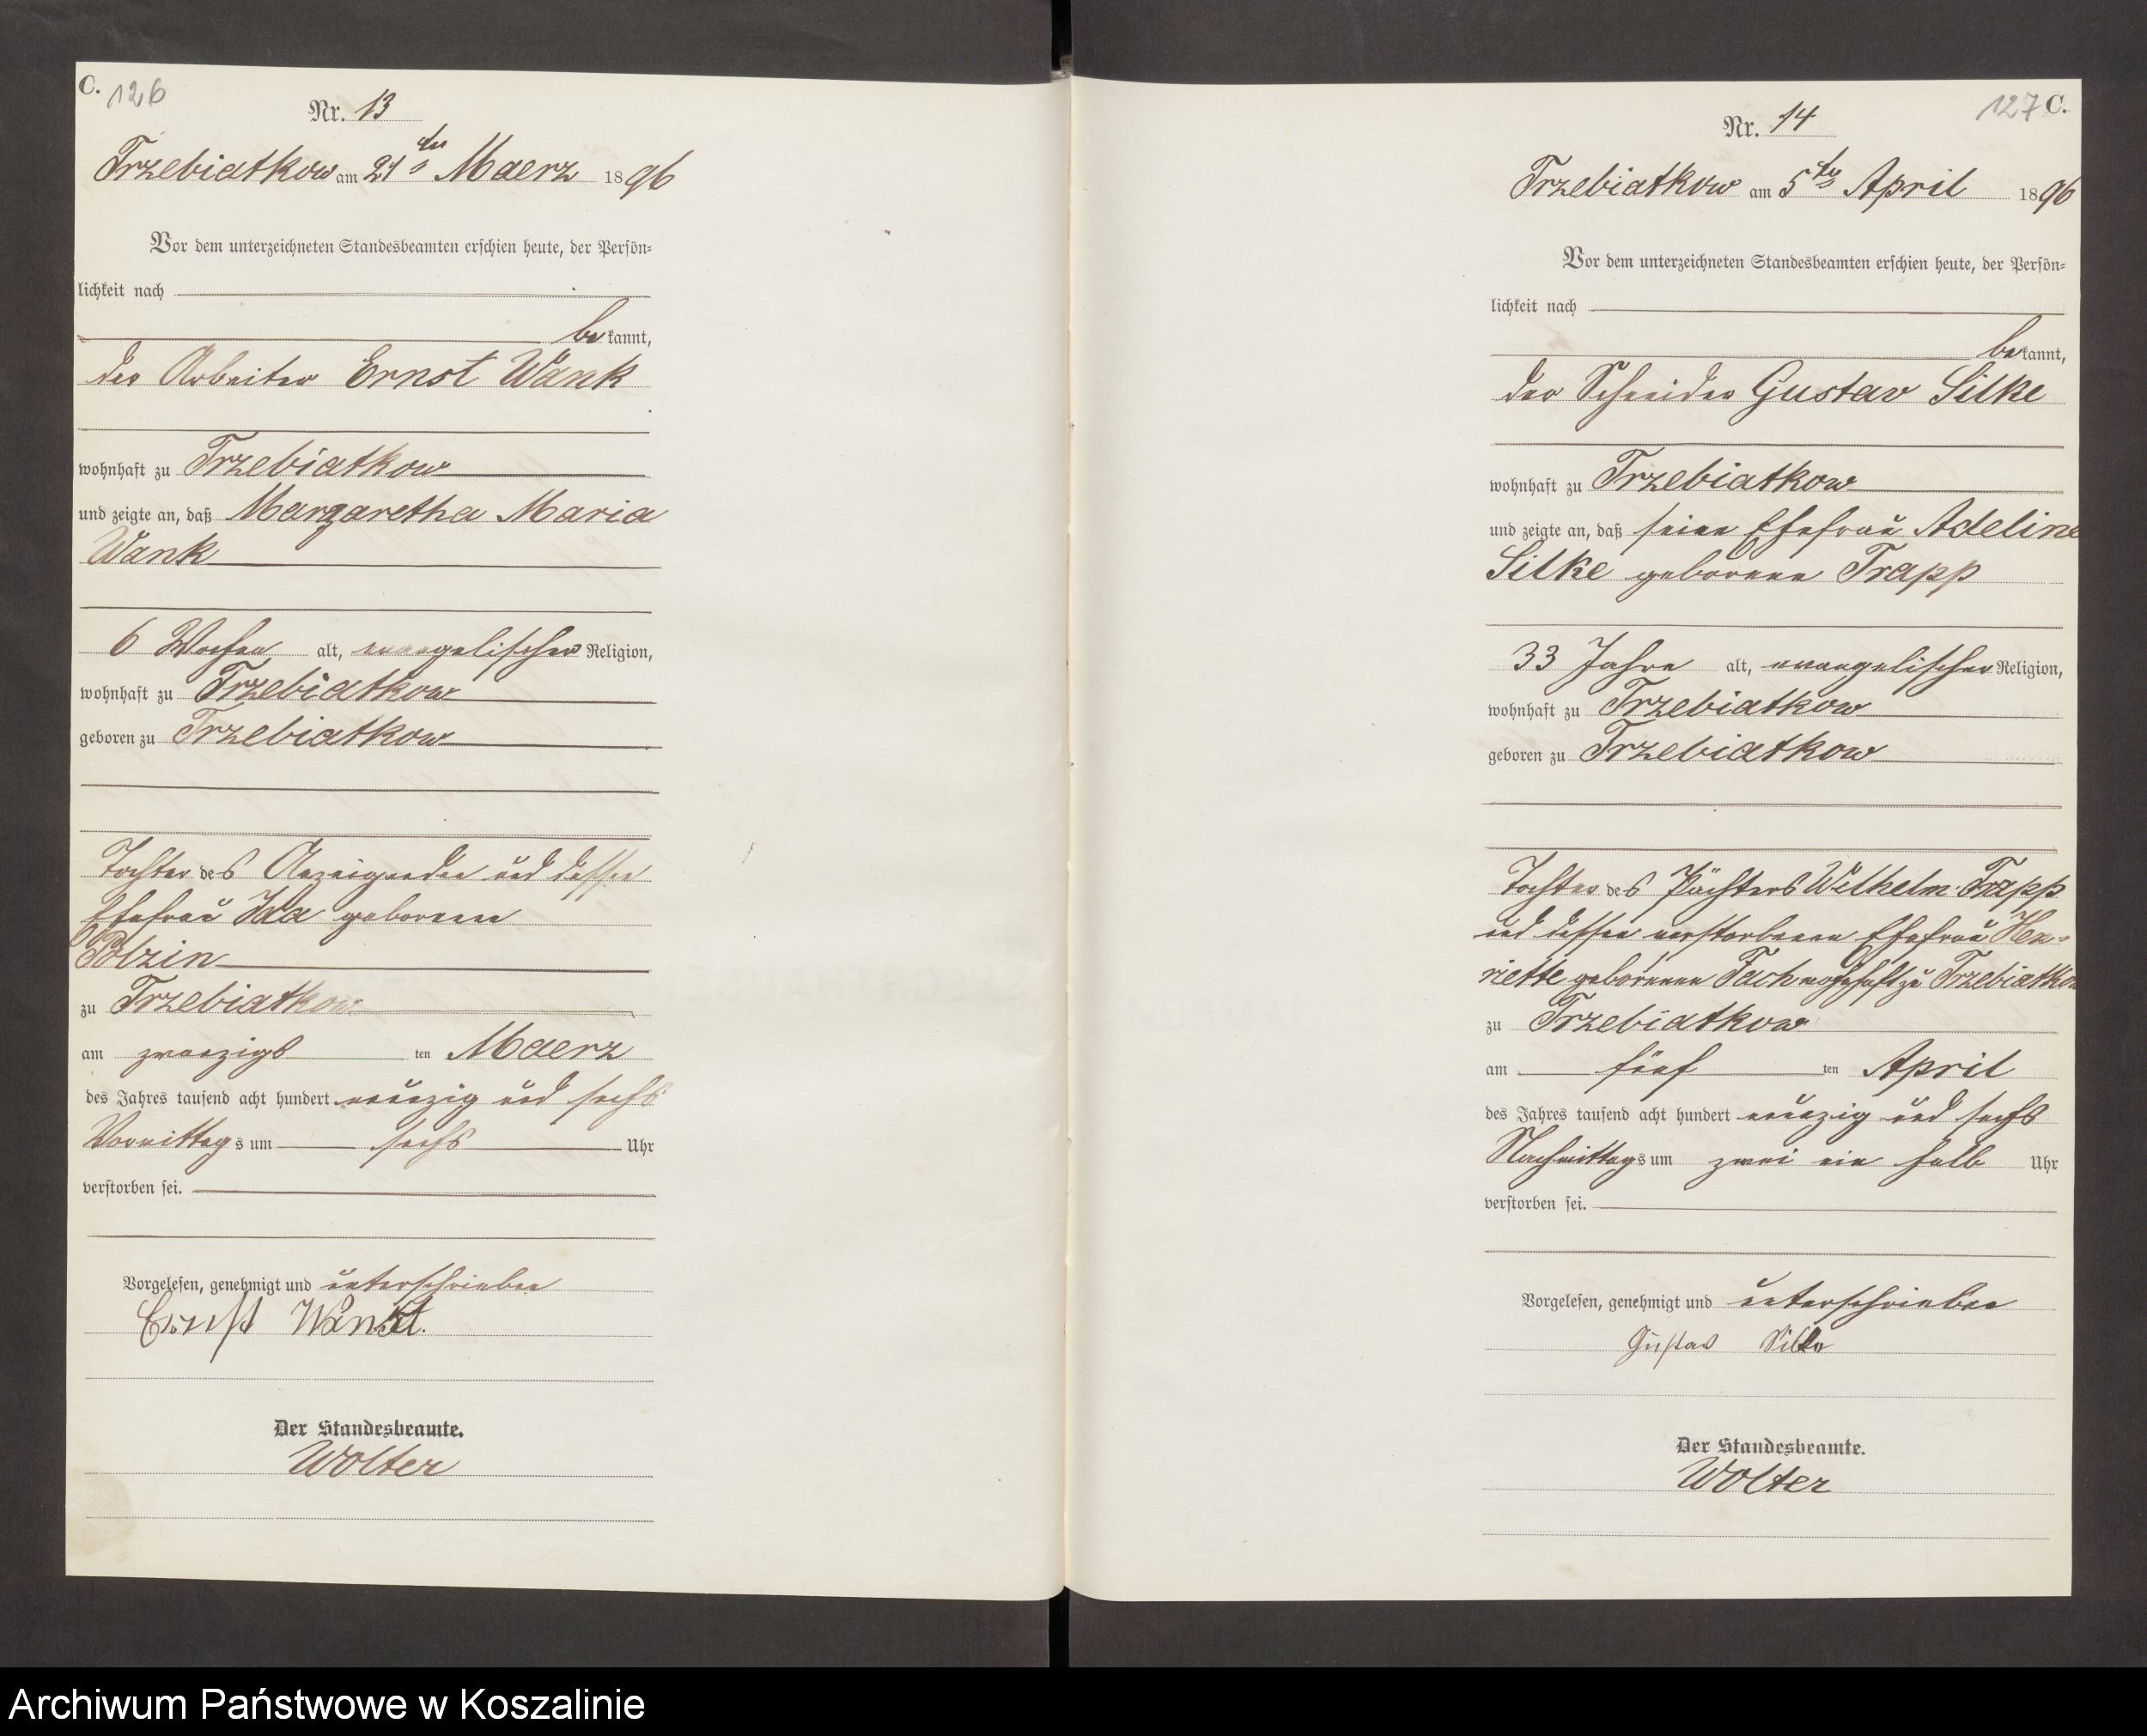 C. 126
Nr. 13
Trzebiatkow am 21ten Maerz 1896
Vor dem unterzeichneten Standesbeamten erschien heute, der Persön-
lichkeit nach
bekannt,
der Arbeiter Ernst Wank
wohnhaft zu Trzebiatkow
und zeigte an, daß Margaretha Maria
Wank
6 Wochen alt, evangelischer Religion,
wohnhaft zu Trzebiatkow
geboren zu Trzebiatkow
Tochter des Anzeigenden und dessen
Ehefrau Ida geborene
Polzin
zu Trzebiatkow
am zwanzigs ten Maerz
des Jahres tausend acht hundert neunzig und sechs
Vormittags um sechs Uhr
verstorben sei.
Vorgelesen, genehmigt und unterschrieben
Ernst
Der Standesbeamte.
Wolter
127 C.
Nr. 14
Trzebiatkow am 5ten April 1896
Vor dem unterzeichneten Standesbeamten erschien heute, der Persön-
lichkeit nach
bekannt,
der Schneider Gustav Silke
wohnhaft zu Trzebiatkow
und zeigte an, daß seine Ehefrau Adeline
Silke geborene Trapp
33 Jahre alt, evangelischer Religion,
wohnhaft zu Trzebiatkow
geboren zu Trzebiatkow
Tochter des Pächters Wilhelm Trapp
und dessen verstorbenen Ehefrau Hen-
riette geborenen Fach wohnhaft zu Trzebiatkow
zu Trzebiatkow
am fünf ten April
des Jahres tausend acht hundert neunzig und sechs
Nachmittags um zwei ein halb Uhr
verstorben sei.
Vorgelesen, genehmigt und unterschrieben
Gustav Silke
Der Standesbeamte.
Wolter
Archiwum Państwowe w Koszalinie